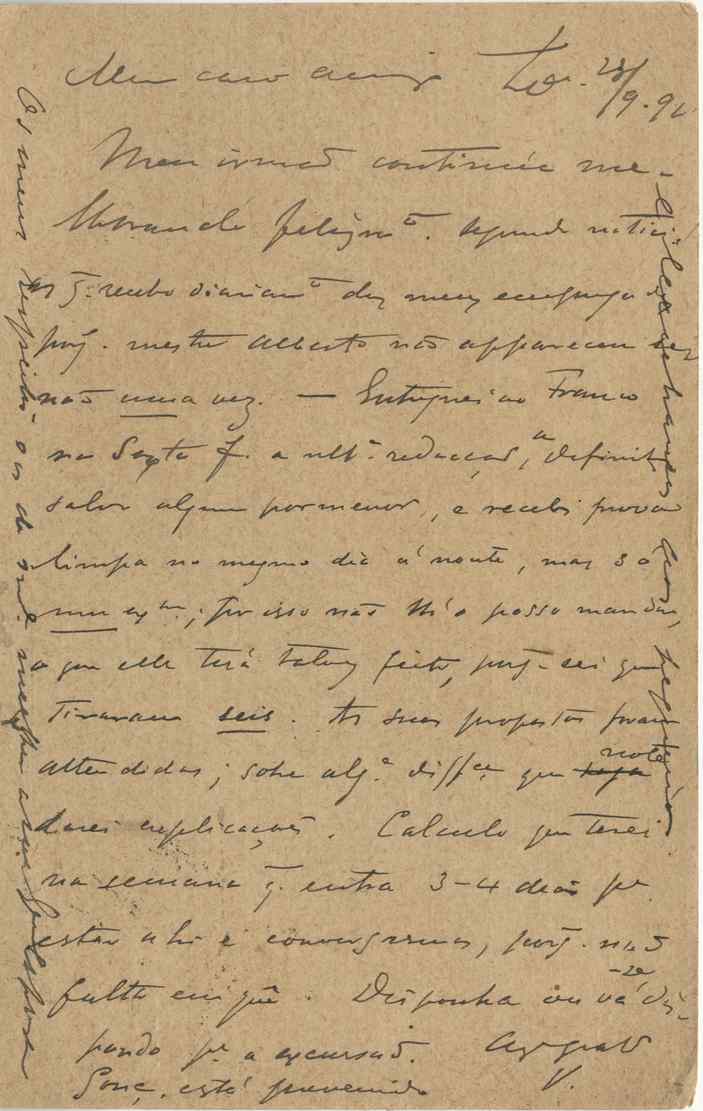 Meu caro amigo Lxa. 28/9.92
Meu irmão continúa me-
lhorando felizmte. segundo notici-
as q. recebo diariamte dos meus
porq. mestre Alberto não appareceu
não uma vez. — Entreguei ao Franco
na Sexta f. a ulta. redacção, a definitiva
salvo algum pormenor, e recebi prova
limpa no mesmo dia á noute, mas só
um exar.; por isso não lh'o posso mandar,
o que elle terá talvez feito, porq. sei que
tiraram seis. As suas propostas foram
attendidas; sobre alga. diffça. que note
darei explicações. Calculo que terei
na semana q. entra 3-4 dias pa.
estar ahi e conversarmos, porq. não
falta em quê. Disponha ou vá-se dis-
pondo pa. a excursão.
Gonç. está prevenido V.
Os meus respeitos e os de mea. mulher a sua Esposa